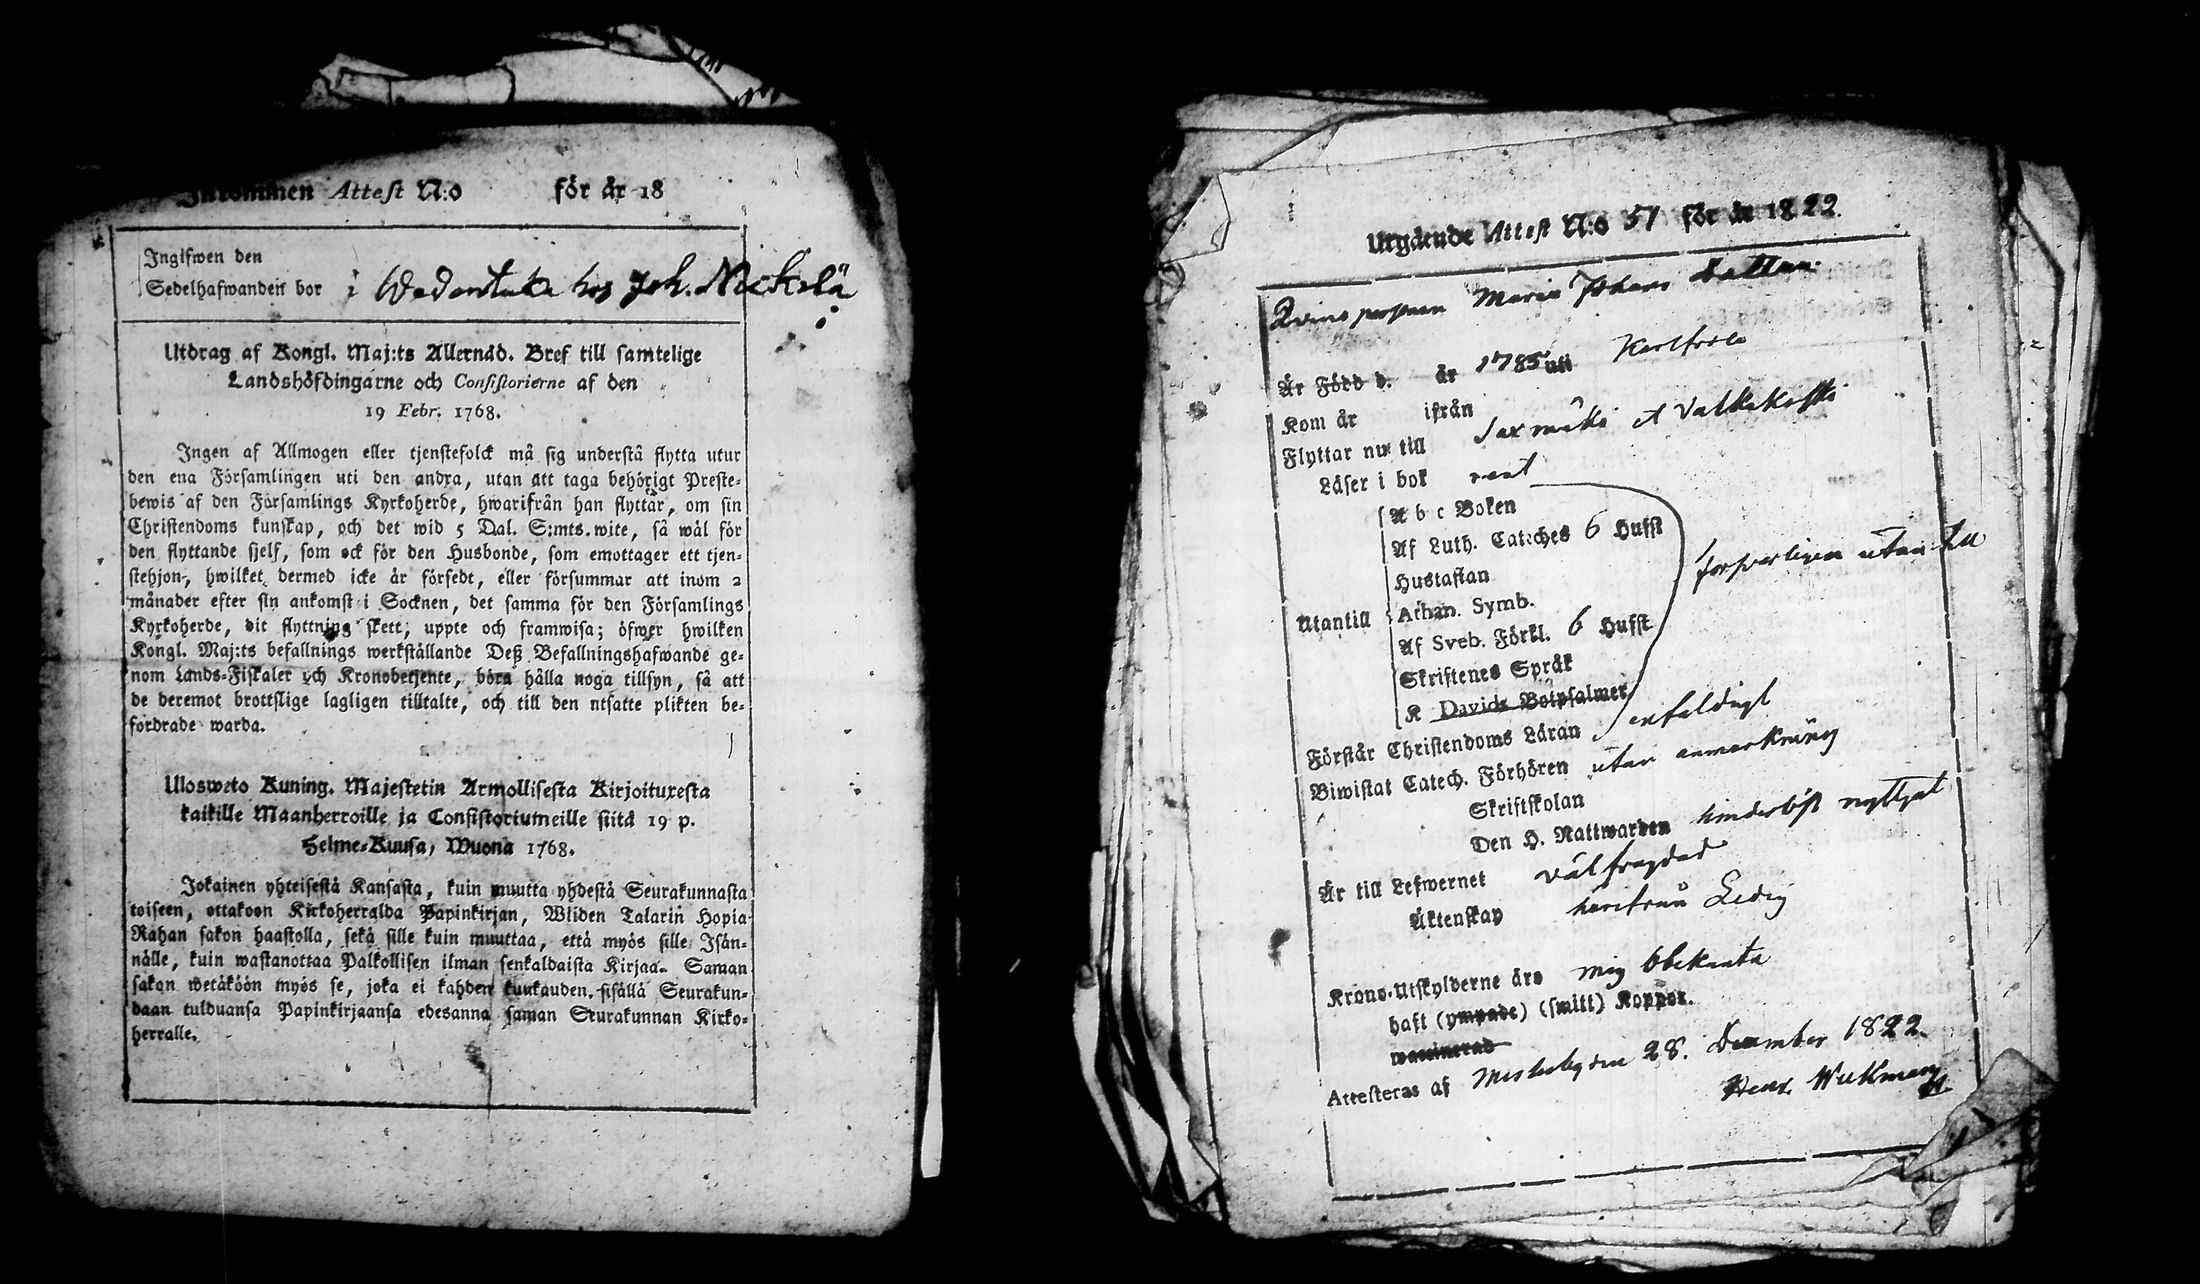 Inkommen Attest N:o för år 18
Ingifwen den
Sedelhafwanden bor i hos Joh. Nickolä
Utdrag af Kongl. Maj:ts Allernåd. Bref till samtelige
Landshöfdingarne och Consistorierne af den
19 Febr. 1768.
Ingen af Allmogen eller tjenstefolck må sig understå flytta utur
den ena Församlingen uti den andra, utan att taga behörigt Preste-
bewis af den Församlings Kyrkoherde, hwarifrån han flyttar, om sin
Christendoms kunskap, och det wid 5 Dal. S:mts. wite, så wäl för
den flyttande sjelf, som ock för den Husbonde, som emottager ett tjen-
stehjon, hwilket dermed icke är försedt, eller försummar att inom 2
månader efter sin ankomst i Socknen, det samma för den Församlings
Kyrkoherde, dit flyttning skett, uppte och framwisa; öfwer hwilken
Kongl. Maj:ts befallnings werkställande Deß Befallningshafwande ge-
nom Lands-Fiskaler och Kronobetjente, böra hålla noga tillsyn, så att
de deremot brottslige lagligen tilltalte, och till den utsatte plikten be-
fordrade warda.
Ulosweto Kuning. Majestetin Armollisesta Kirjoituxesta
kaikille Maanherroille ja Consistoriumeille siitä 19 p.
Helme-Kuusa, Wuona 1768.
Jokainen yhteisestä Kansasta, kuin muutta yhdestä Seurakunnasta
toiseen, ottakoon Kirkoherralda Papinkirjan, Wiiden Talarin Hopia
Rahan sakon haastolla, sekä sille kuin muuttaa, että myös sille Isän-
nälle, kuin wastanottaa Palkollisen ilman senkaldaista Kirjaa. Saman
sakon wetäköön myös se, joka ei kahden kuukauden sisällä Seurakun-
daan tulduansa Papinkirjaansa edesanna saman Seurakunnan Kirko-
herralle.
Utgående Attest N:o 51 för år 1822.
Qvinspersonen Maria Johans dotter
Är Född d. år 1785 uti
Kom år ifrån
Flyttar nu till Saxmäki et Valkiakoski
Läser i bok rent
A b c Boken
Af Luth. Cateches 6 Hufst
Hustaflan
Utantill Athan. Symb.
Af Sveb. Förkl. 6 Hufst
Skriftenes Språk
K Davids Botpsalmer
försvarligen utan till
Förstår Christendoms Läran enfaldigt
Biwistat Catech. Förhören utan anmärkning
Skriftskolan
Den H. Nattwarden hinderlöst nyttjat
Är till Lefwernet välfrägdad
Äktenskap härifrån Ledig
Krono-Utskylderne äro mig obekanta
haft (ympade) (smitt) Koppor.
waccinerad
Attesteras af Messuby den 28. December 1822.
Henr. Wickman